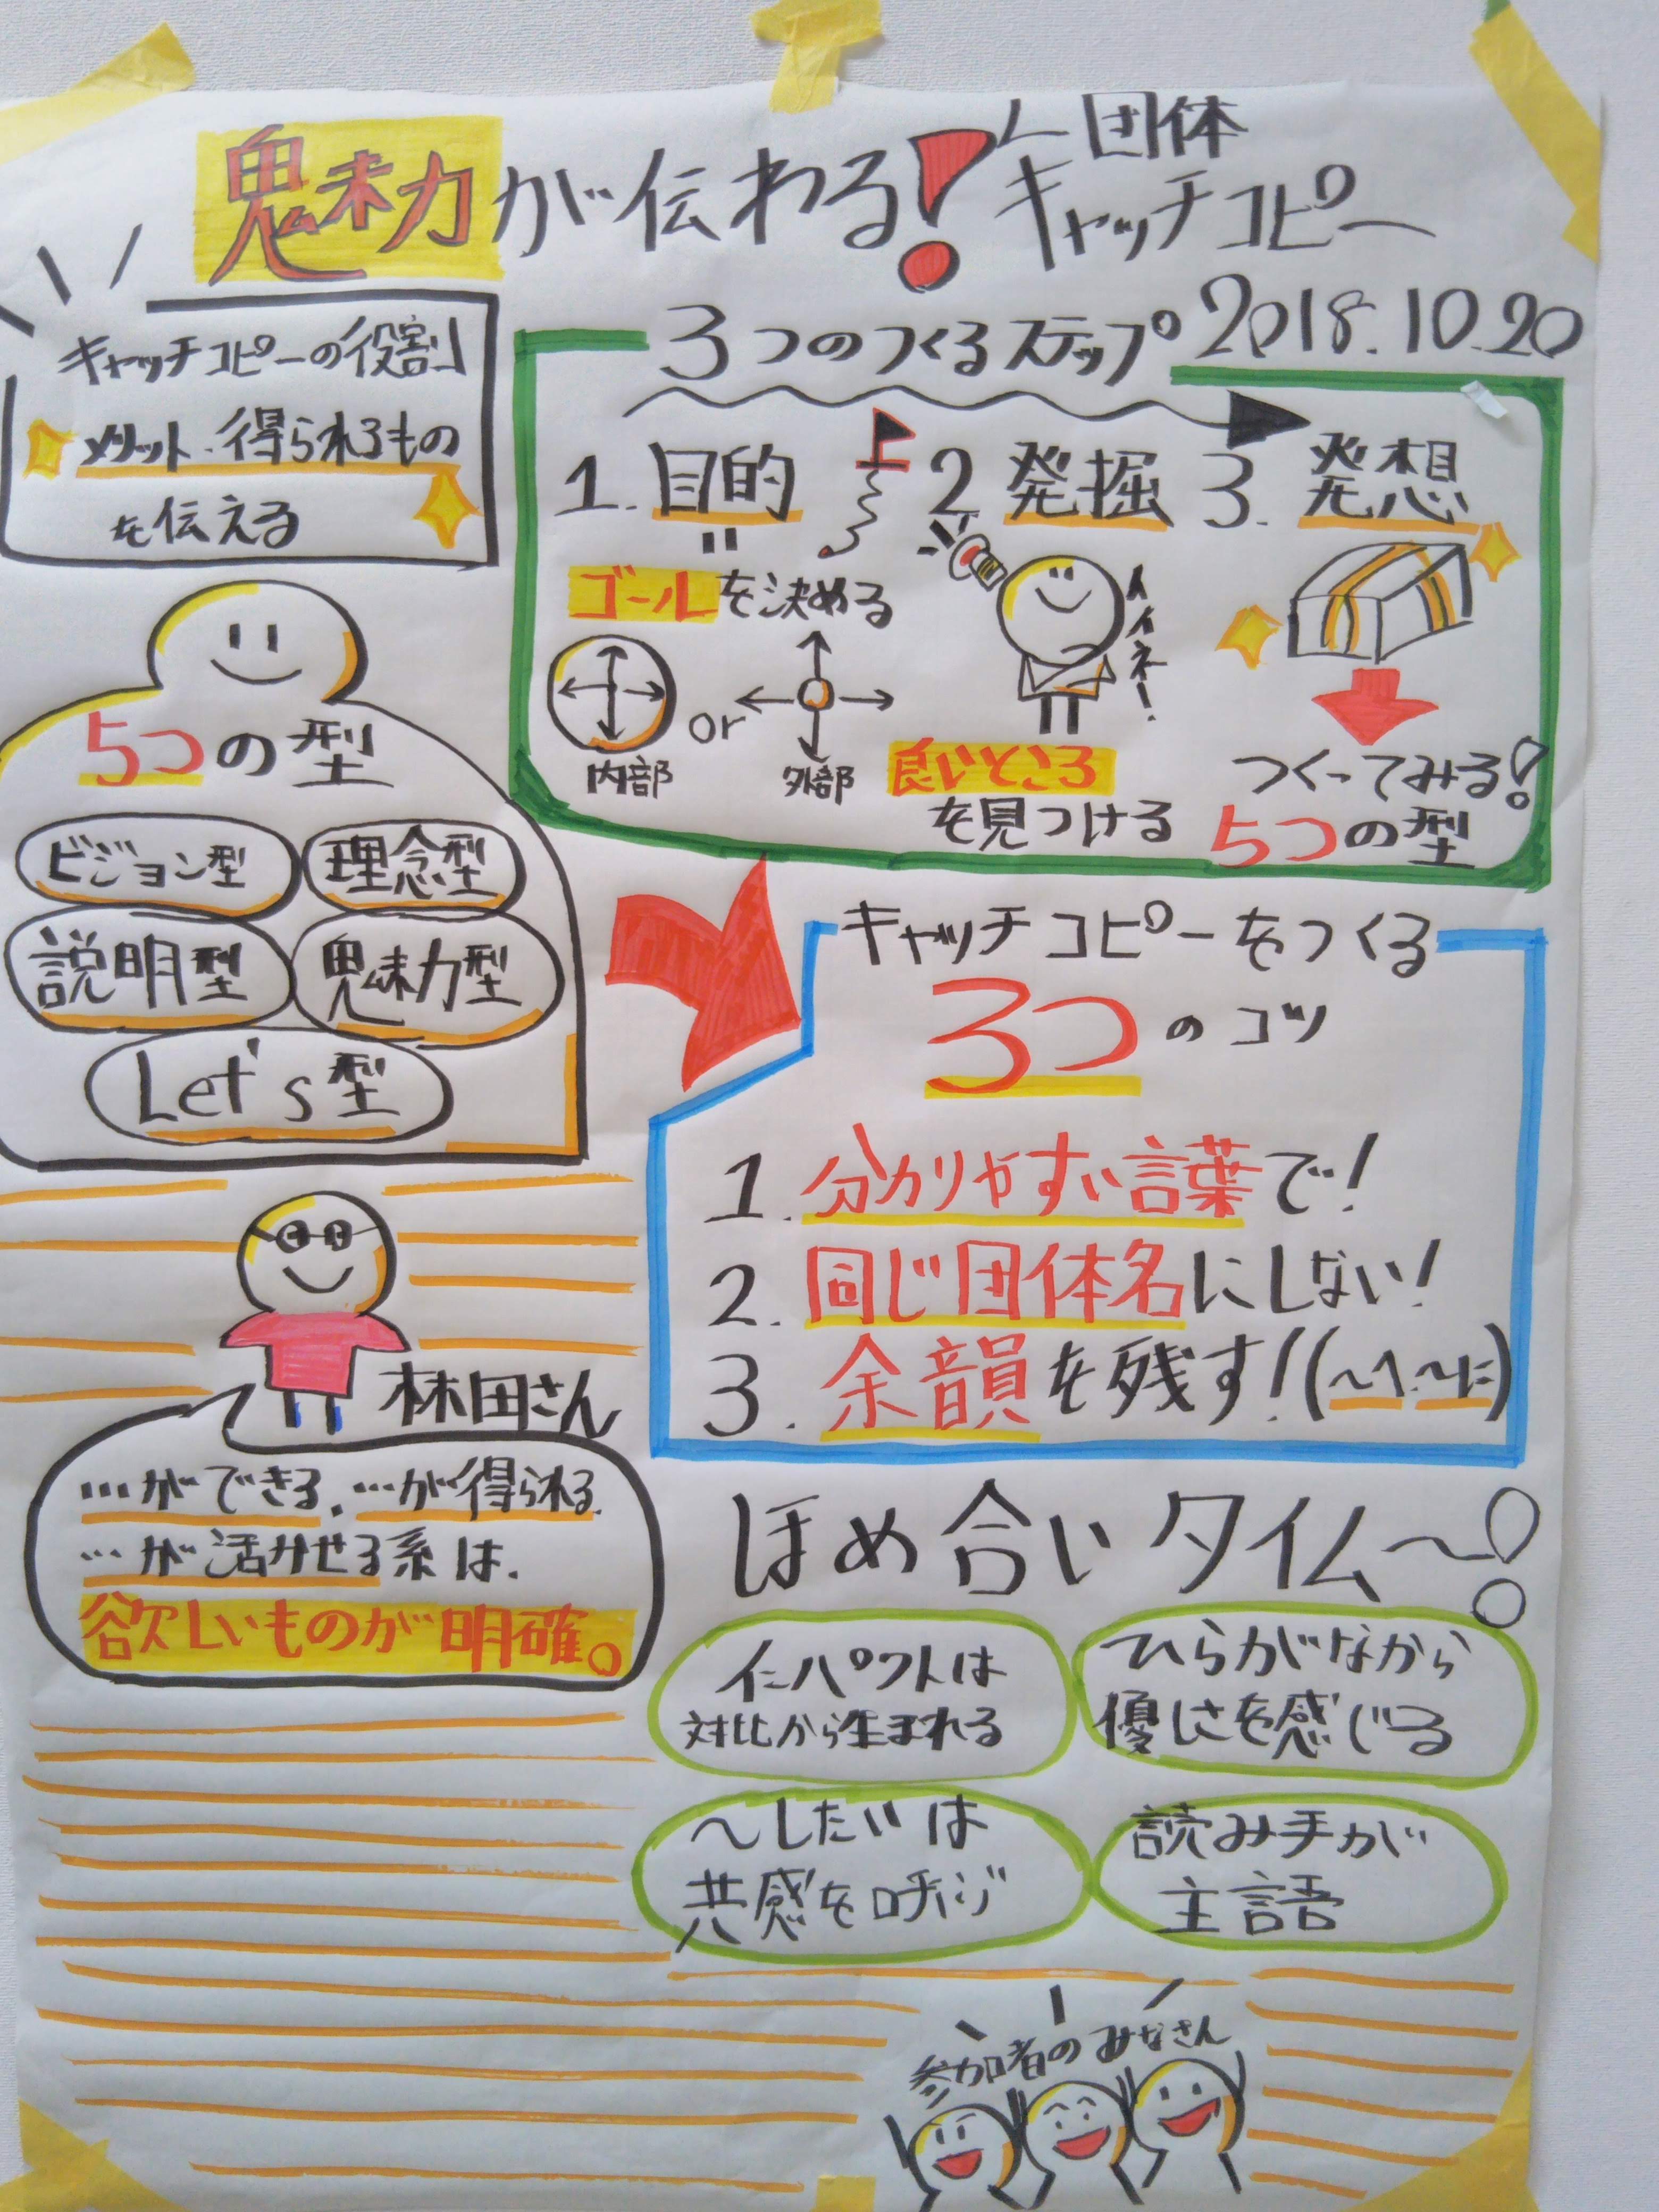 魅力が伝わる!
団体
キャッチコピー
2018.10.20
キャッチコピーの役割
メリット・得られるもの
を伝える
3つのつくるステップ
1. 目的
ゴールを決める
内部
or
外部
2. 発掘
イイネー!
良いところ
を見つける
3. 発想
つくってみる!
5つの型
5つの型
ビジョン型
理念型
説明型
魅力型
Let's型
キャッチコピーをつくる
3つのコツ
1. 分かりやすい言葉で!
2. 同じ団体名にしない!
3. 余韻を残す!(〜へ、〜に)
林田さん
…ができる、…が得られる、
…が活かせる系は、
欲しいものが明確。
ほめ合いタイム〜!
インパクトは
対比から生まれる
ひらがなから
優しさを感じる
〜したいは
共感を呼ぶ
読み手が
主語
参加者のみなさん